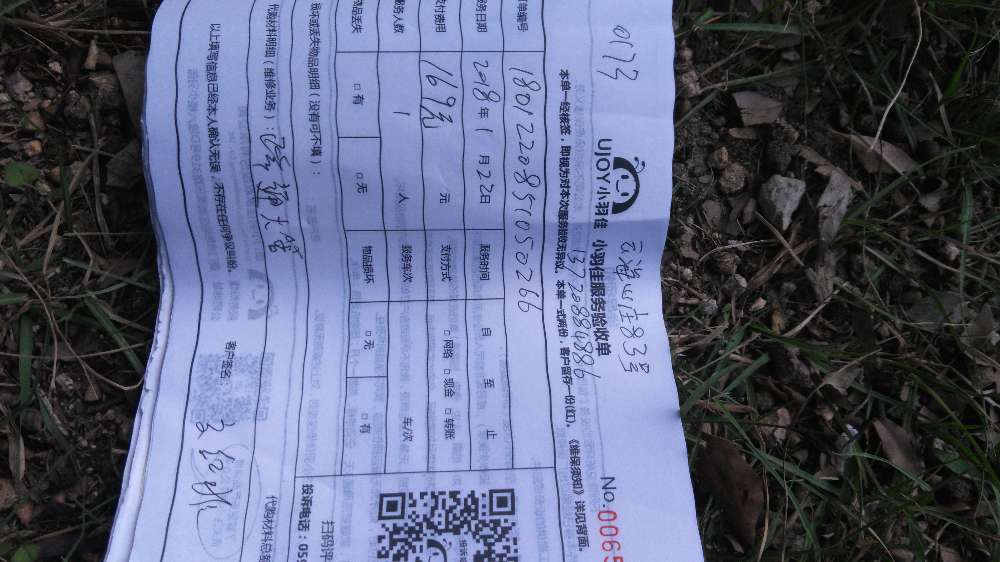 云海山庄83号
13720884886
UJOY小羽佳 小羽佳服务验收单
No.0065
本单一经核签，即视为对本次服务验收无异议。本单一式两份，客户留存一份(红)。《维保须知》详见背面。
单编号 1801220851050266
服务日期 2018年1月22日 服务时间 自 至 止
支付费用 169元 元 支付方式 □网络 □现金 □转账
服务人数 1 人 服务车次 车/次
物品丢失 □有 □无 物品损坏 □无 □有
损坏或丢失物品明细（没有可不填）：
代购材料明细（维修业务）：
代购材料总额
以上填写信息已经本人确认无误，不存在任何争议纠纷。 客户签名：
扫码评
投诉电话：059